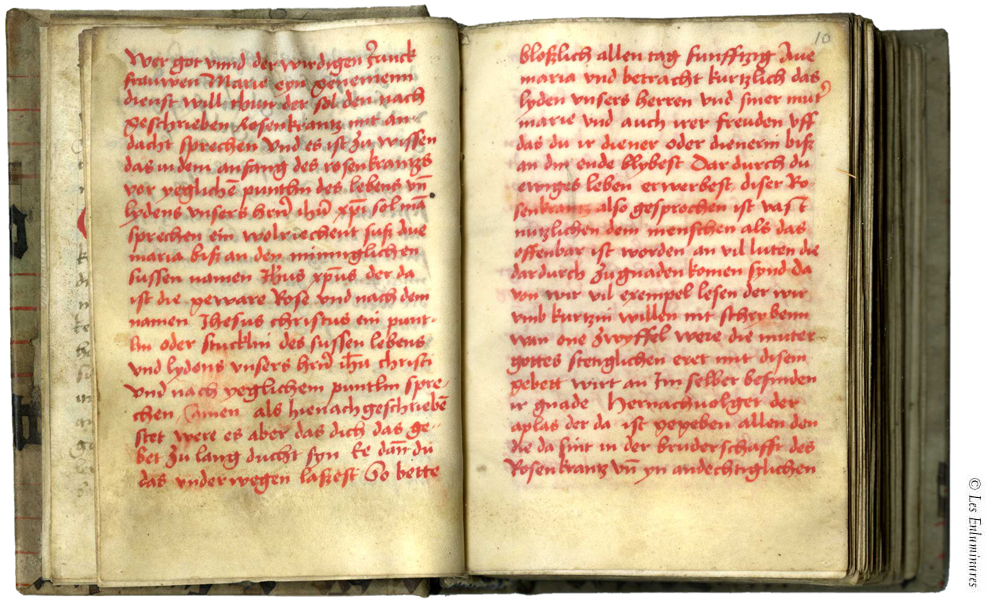 Wer got vnnd der wirdigen Junck
frauwen Marie eyn genemenn
dienst will thun der sol den nach
geschrieben Rosenkrantz mit an
dacht sprechen Vnd es ist zu wissen
das in dem anfang des rosenkrantzs
vor yeglichē puntlin des lebens vn̄
lydens vnsers hrn̄ ihū xpī sol mā
sprechen ein wolriechent susi aue
maria biß an den minniglichen
sussen namen Ihūs xp̄us der da
ist die geware Rose vnd nach dem
namen Ihesus christus ein punt-
lin oder stucklini des sussen lebens
vnd lydens vnsers hrn̄ ihū christi
vnd nach yeglichem puntlin spre-
chen Amen als hienach geschriebē
stet were es aber das dich das ge-
bet zu lang ducht syn ee dan̄ du
das vnderwegen lassest So bette
10
bloßlich allen tag funfftzig Aue
maria vnd betracht kurtzlich das
lyden vnsers herren vnd siner mut'
marie vnd auch irer freuden vff
das du ir diener oder dienerin biß
an din ende blybest Dar durch du
ewiges leben erwerbest diser Ro
senkrantz also gesprochen ist vast
nutzlichen dem menschen als das
offenbar ist worden an vil luten die
dar durch zu gnaden komen synd da
von wir vil exempel lesen der wir
vmb kurtzin willen nit schrybenn
wan one zwyffel were die muter
gottes stenglichen eret mit disem
gebett wirt an Im selber befinden
ir gnade Hernach volget der
aplas der da ist gegeben allen den
die da sint in der bruderschafft des
Rosenkrantz vn̄ yn andechtiglichen
© Les Enluminures